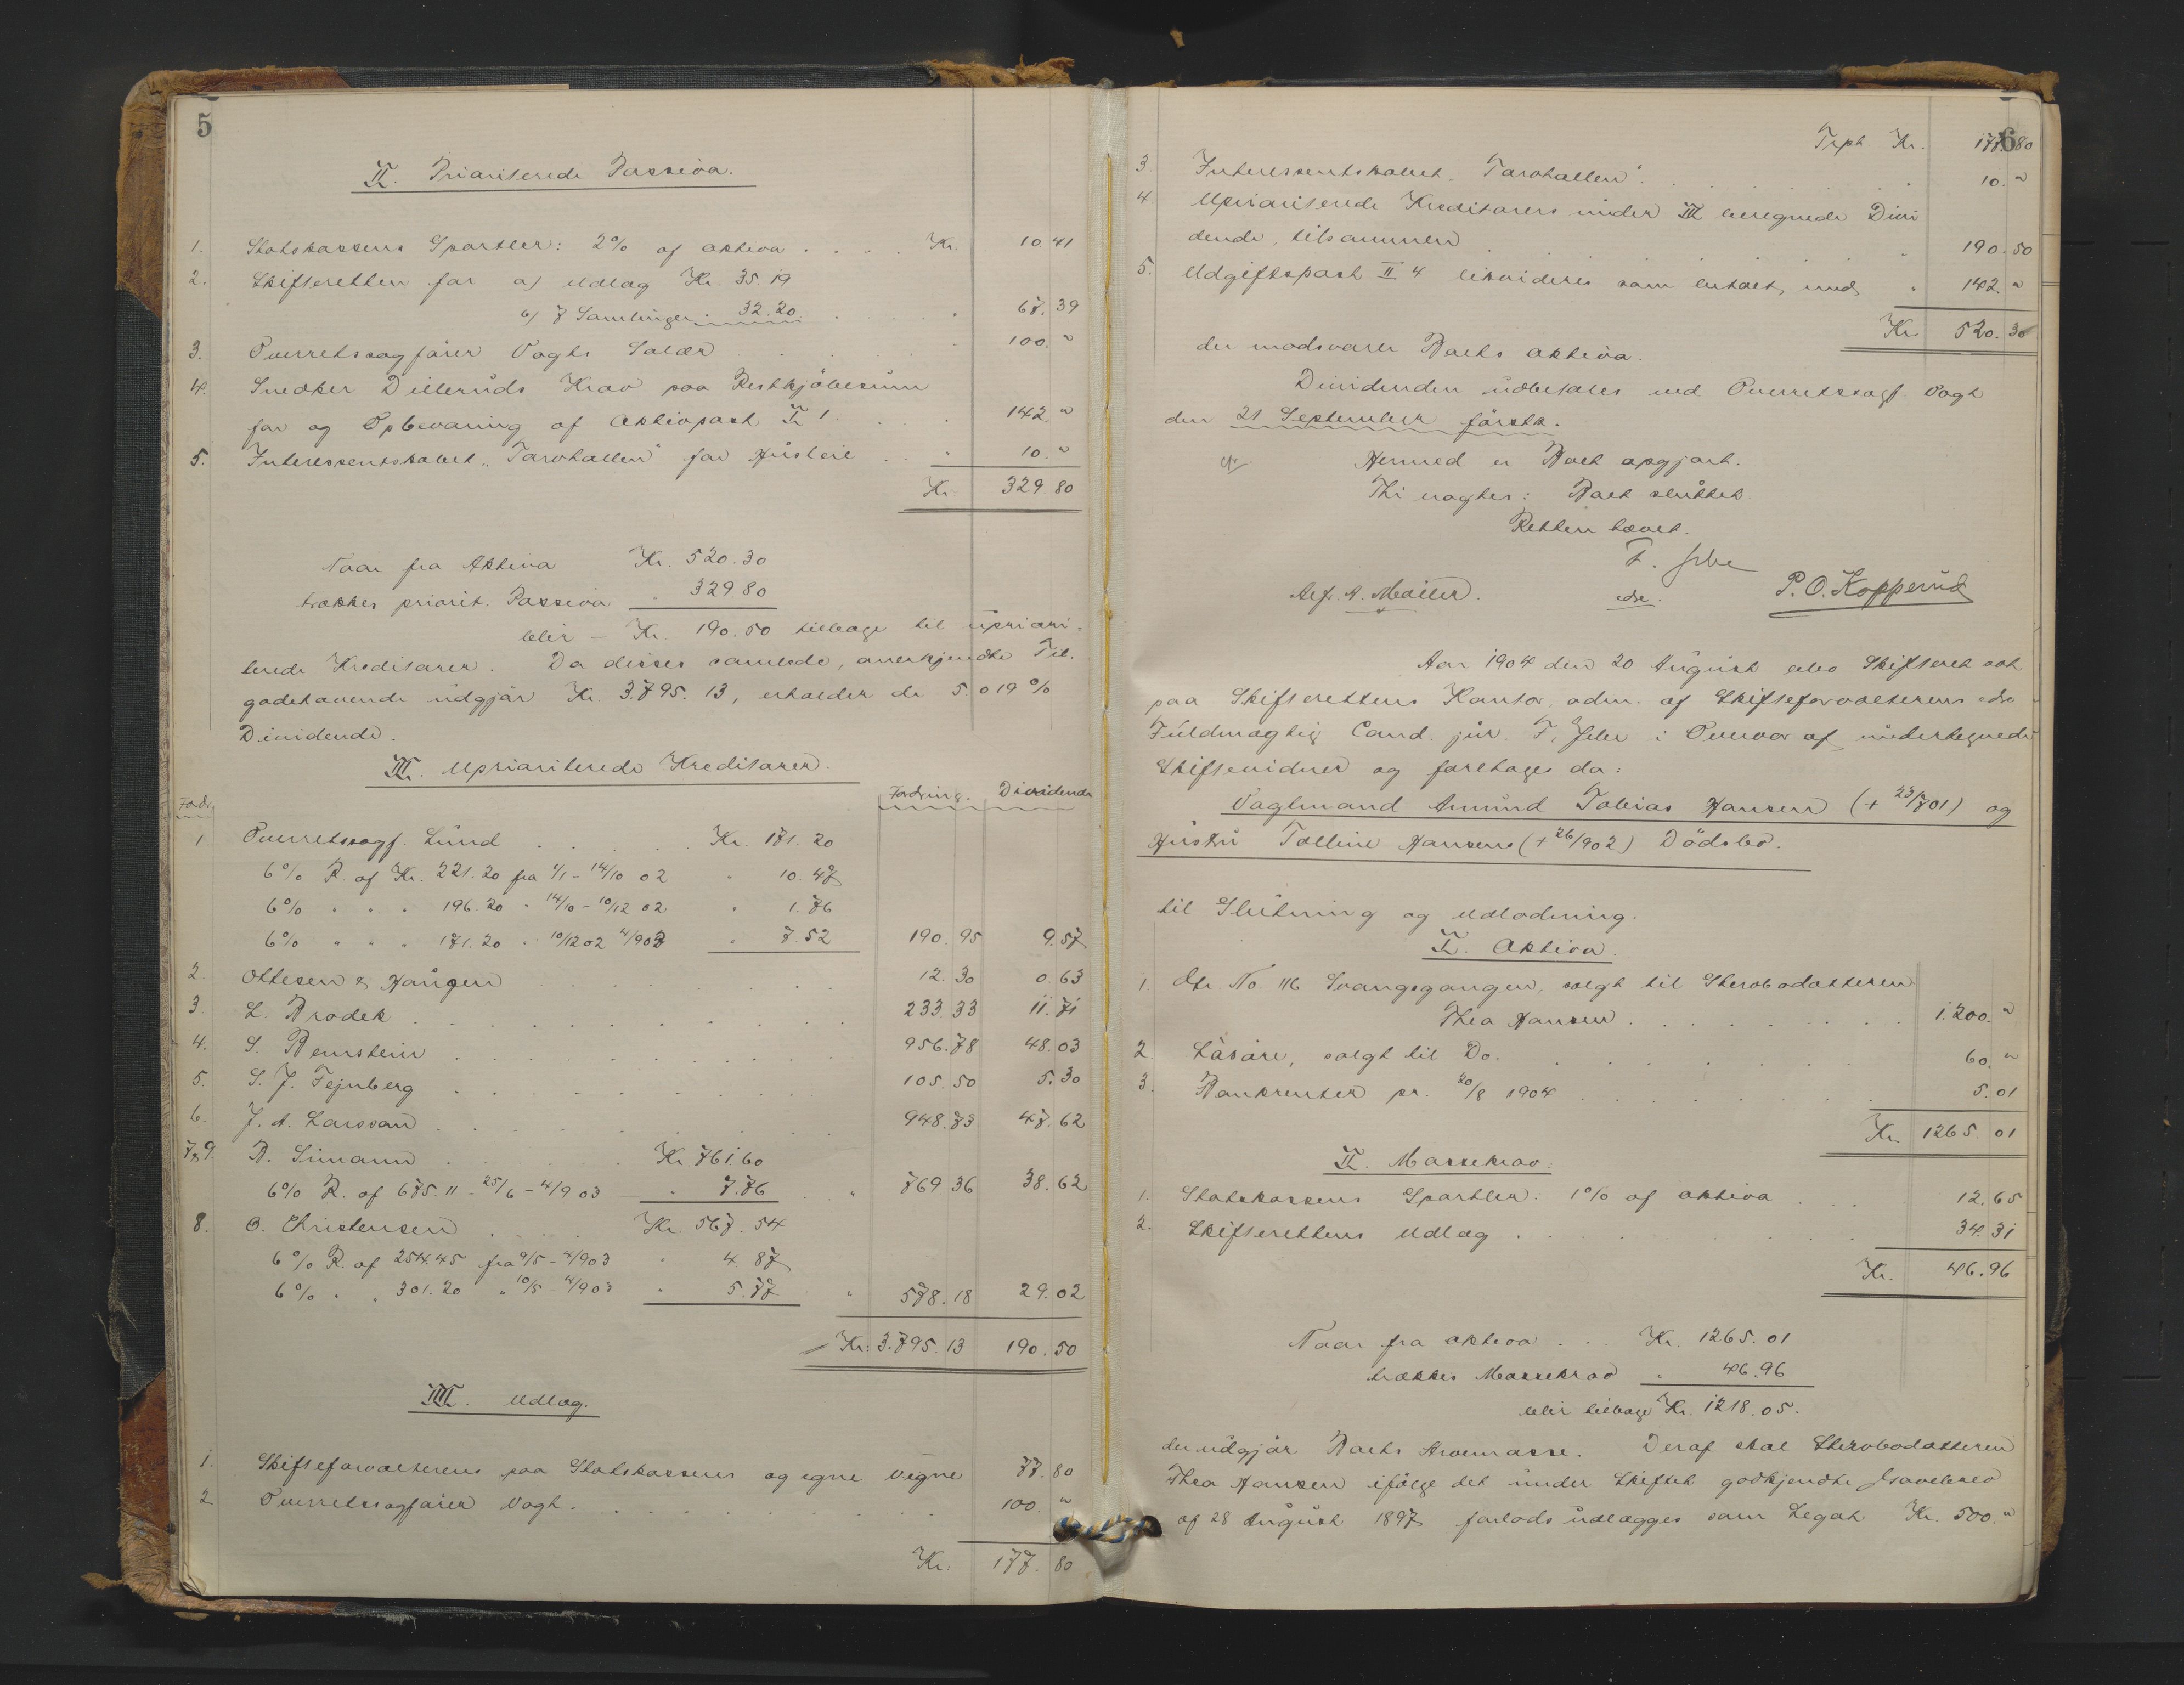 5
II. Prioriterede Passiva.
1. Statskassens Sportler: 2% af aktiva . . . . Kr. 10.41
2. Skifteretten for a) Udlæg Kr. 35.19
b) 7 Samlinger " 32.20 . . . " 67.39
3. Overretssagfører Vogts Salær . . . " 100. "
4. Snedker Dilleruds Krav paa Restkjøbesum
for og Opbevaring af Aktivpost I 1 . . . 142 "
5. Interessentskabet "Tarvhallen" for Husleie . " 10. "
Kr. 329.80
Naar fra Aktiva Kr. 520.30
trækkes priorit. Passiva " 329.80
blir – Kr. 190.50 tilbage til upriori-
terede Kreditorer. Da disses samlede, anerkjendte Til-
godehavende udgjør Kr. 3.795.13, erholder de 5.019%
Dividende.
III. Uprioriterede Kreditorer.
Fordr. Fordring. Dividende
1 Overretssagf. Lund . . . . . Kr. 171.20
6% R. af Kr. 221.20 fra 1/1 – 14/10 02 " 10.47
6% " " " 196.20 " 14/10 – 10/12 02 " 1.76
6% " " " 171.20 " 10/12 02 4/903 " 7.52 190.95 9.57
2. Ottesen & Haugen . . . . . 12.30 0.63
3. L. Brodek . . . . . 233.33 11.71
4. S. Bernstein . . . . . 956.78 48.03
5. S. J. Fejnberg . . . . . 105.50 5.30
6. J. A. Larsson . . . . . 948.73 47.62
7&9. B. Simann . . . . . Kr. 761.60
6% R. af 675.11 – 25/6 – 4/9 03 " 7.76 . " 769.36 38.62
8. O. Christensen . . . . Kr. 567.54
6% R. af 254.45 fra 9/5 – 4/903 " 4.87
6% " " 301.20 " 10/5 – 4/903 " 5.77 " 578.18 29.02
Kr. 3.795.13 190.50
IIII. Udlæg.
1. Skifteforvalterens paa Statskassens og egne Vegne 77.80
2 Overretssagfører Vogt . . . . . 100. "
Kr. 177.80
6
Trpt Kr. 177.80
3. Interessentskabet "Tarvhallen" . . . . . " 10. "
4. Uprioriterede Kreditorers under III beregnede Divi
dende, tilsammen . . . . . " 190.50
5. Udgiftspost II 4 likvideres som betalt med " 142. "
Kr. 520.30
der modsvarer Boets aktiva.
Dividenden udbetales ved Overretssagf. Vogt
den 21 September førstk.
Hermed er Boet opgjort.
Thi vagtes: Boet sluttet
Retten hævet.
P. O. Kopperud
Aar 1904 den 20 August blev Skifteret sat
paa Skifterettens Kontor, adm. af Skifteforvalterens edsv
Fuldmægtig Cand. jur. F. i Overvær af undertegnede
Skiftevidner og foretoges da:
Vagtmand Amund Tobias Hansen († 23/701) og
Hustru Tolline Hansens († 26/902) Dødsbo.
til Slutning og Udlodning.
I. Aktiva.
1. Gr. No 116 Svangsgangen, solgt til Stervbodatteren
Thea Hansen . . . . . 1.200. "
2 Løsøre, solgt til Do. . . . . . 60. "
3. Bankrenter pr. 20/8 1904 . . . . . 5.01
Kr. 1265.01
II. Massekrav:
1. Statskassens Sportler: 1% af aktiva . . . 12.65
2. Skifterettens Udlæg . . . . . 34.31
Kr. 46.96
Naar fra aktiva . . . Kr. 1265.01
trækkes Massekrav " 46.96
blir tilbage Kr. 1218.05.
der udgjør Boets Arvemasse. Deraf skal Stervbodatteren
Thea Hansen ifølge det under Skiftet godkjendte Gavebrev
af 28 August 1897 forlods udlægges som Legat Kr. 500. "